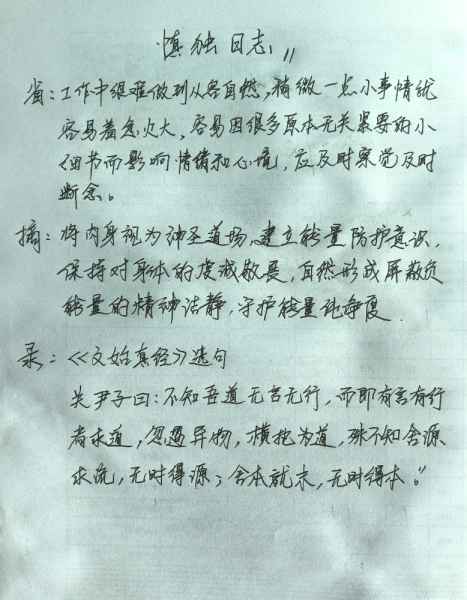 慎独日志 11
省：工作中很难做到从容自然，稍微一点小事情就
容易着急火大，容易因很多原本无关紧要的小
细节而影响情绪和心境，应及时察觉及时
断念。
摘：将内身视为神圣道场，建立能量防护意识，
保持对身体的虔诚敬畏，自然形成屏蔽负
能量的精神洁静，守护能量纯净度.
录：《文始真经》选句
关尹子曰：不知吾道无言无行，而即有言有行
者求道，忽遇异物，横执为道，殊不知舍源
求流，无时得源；舍本就末，无时得本。”